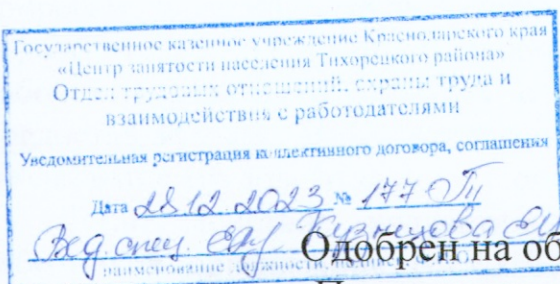 Государственное казенное учреждение Краснодарского края
«Центр занятости населения Тихорецкого района»
Отдел трудовых отношений, охраны труда и
взаимодействия с работодателями
Уведомительная регистрация коллективного договора, соглашения
Дата 28.12.2023 № 177
Вед. спец. Кузнецова
наименование должности, подпись
Одобрен на об